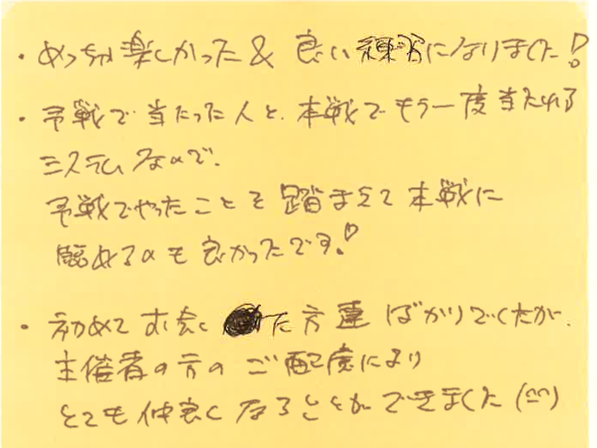 ・めっちゃ楽しかった & 良い練習になりました!
・予戦で当たった人と、本戦でもう一度当たれる
システムなので、
予戦でやったことを踏まえて本戦に
臨めるのも良かったです!
・初めてお会いした方達ばかりでしたが、
主催者の方のご配慮により
とても仲良くなることができました (^^)